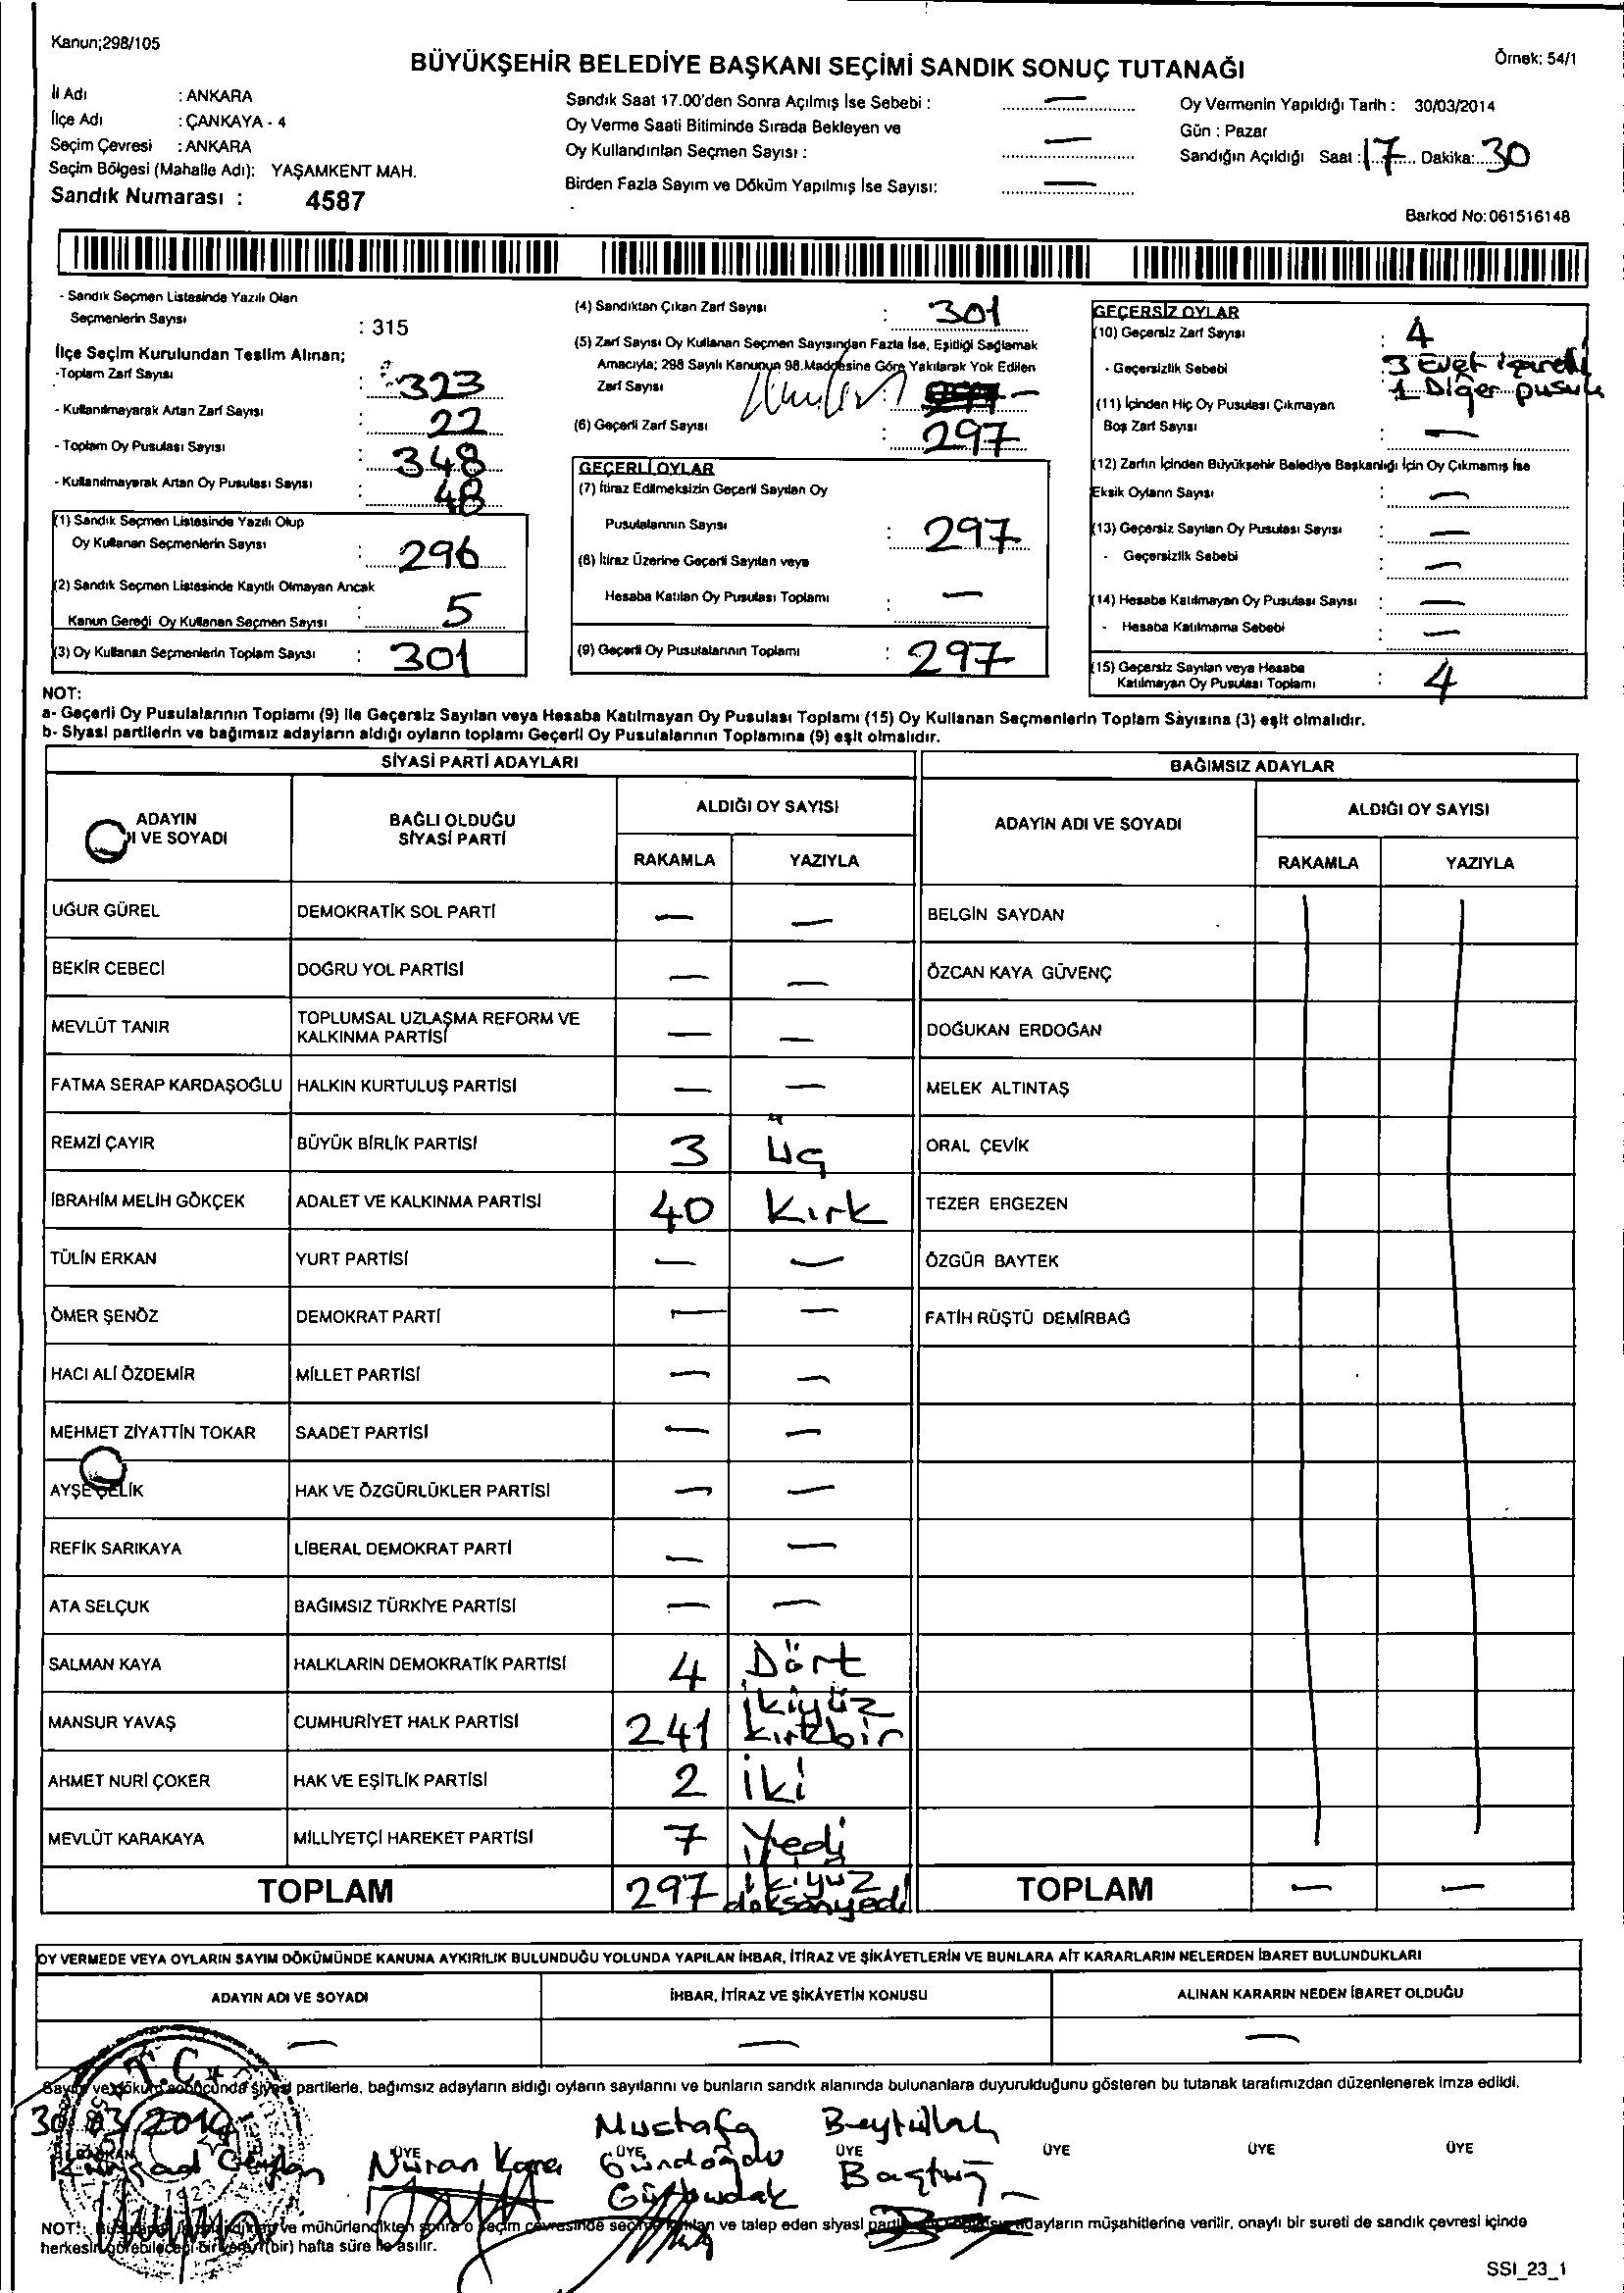 Kanun;298/105
Örnek: 54/1
BÜYÜKŞEHİR BELEDİYE BAŞKANI SEÇİMİ SANDIK SONUÇ TUTANAĞI
İl Adı : ANKARA
İlçe Adı : ÇANKAYA - 4
Seçim Çevresi : ANKARA
Seçim Bölgesi (Mahalle Adı): YAŞAMKENT MAH.
Sandık Numarası : 4587
Sandık Saat 17.00'den Sonra Açılmış İse Sebebi : —
Oy Verme Saati Bitiminde Sırada Bekleyen ve
Oy Kullandırılan Seçmen Sayısı : —
Birden Fazla Sayım ve Döküm Yapılmış İse Sayısı: —
Oy Vermenin Yapıldığı Tarih : 30/03/2014
Gün : Pazar
Sandığın Açıldığı Saat : 17 Dakika: 30
Barkod No: 061516148
- Sandık Seçmen Listesinde Yazılı Olan
Seçmenlerin Sayısı : 315
İlçe Seçim Kurulundan Teslim Alınan;
-Toplam Zarf Sayısı : 323
- Kullanılmayarak Artan Zarf Sayısı : 22
- Toplam Oy Pusulası Sayısı : 348
- Kullanılmayarak Artan Oy Pusulası Sayısı : 48
(1) Sandık Seçmen Listesinde Yazılı Olup
Oy Kullanan Seçmenlerin Sayısı : 296
(2) Sandık Seçmen Listesinde Kayıtlı Olmayan Ancak
Kanun Gereği Oy Kullanan Seçmen Sayısı : 5
(3) Oy Kullanan Seçmenlerin Toplam Sayısı : 301
(4) Sandıktan Çıkan Zarf Sayısı : 301
(5) Zarf Sayısı Oy Kullanan Seçmen Sayısından Fazla İse, Eşitliği Sağlamak
Amacıyla; 298 Sayılı Kanunun 98.Maddesine Göre Yakılarak Yok Edilen
Zarf Sayısı —
(6) Geçerli Zarf Sayısı : 297
GEÇERLİ OYLAR
(7) İtiraz Edilmeksizin Geçerli Sayılan Oy
Pusulalarının Sayısı : 297
(8) İtiraz Üzerine Geçerli Sayılan veya
Hesaba Katılan Oy Pusulası Toplamı : —
(9) Geçerli Oy Pusulalarının Toplamı : 297
GEÇERSİZ OYLAR
(10) Geçersiz Zarf Sayısı : 4
- Geçersizlik Sebebi : 3 Evet işaretli
1 Diğer pusula
(11) İçinden Hiç Oy Pusulası Çıkmayan
Boş Zarf Sayısı : —
(12) Zarfın İçinden Büyükşehir Belediye Başkanlığı İçin Oy Çıkmamış İse
Eksik Oyların Sayısı : —
(13) Geçersiz Sayılan Oy Pusulası Sayısı : —
- Geçersizlik Sebebi : —
(14) Hesaba Katılmayan Oy Pusulası Sayısı : —
- Hesaba Katılmama Sebebi : —
(15) Geçersiz Sayılan veya Hesaba
Katılmayan Oy Pusulası Toplamı : 4
NOT:
a- Geçerli Oy Pusulalarının Toplamı (9) ile Geçersiz Sayılan veya Hesaba Katılmayan Oy Pusulası Toplamı (15) Oy Kullanan Seçmenlerin Toplam Sayısına (3) eşit olmalıdır.
b- Siyasi partilerin ve bağımsız adayların aldığı oyların toplamı Geçerli Oy Pusulalarının Toplamına (9) eşit olmalıdır.
SİYASİ PARTİ ADAYLARI
BAĞIMSIZ ADAYLAR
ADAYIN
DI VE SOYADI
BAĞLI OLDUĞU
SİYASİ PARTİ
ALDIĞI OY SAYISI
RAKAMLA YAZIYLA
ADAYIN ADI VE SOYADI
ALDIĞI OY SAYISI
RAKAMLA YAZIYLA
UĞUR GÜREL DEMOKRATİK SOL PARTİ — — BELGİN SAYDAN
BEKİR CEBECİ DOĞRU YOL PARTİSİ — — ÖZCAN KAYA GÜVENÇ
MEVLÜT TANIR TOPLUMSAL UZLAŞMA REFORM VE
KALKINMA PARTİSİ — — DOĞUKAN ERDOĞAN
FATMA SERAP KARDAŞOĞLU HALKIN KURTULUŞ PARTİSİ — — MELEK ALTINTAŞ
REMZİ ÇAYIR BÜYÜK BİRLİK PARTİSİ 3 üç ORAL ÇEVİK
İBRAHİM MELİH GÖKÇEK ADALET VE KALKINMA PARTİSİ 40 Kırk TEZER ERGEZEN
TÜLİN ERKAN YURT PARTİSİ — — ÖZGÜR BAYTEK
ÖMER ŞENÖZ DEMOKRAT PARTİ — — FATİH RÜŞTÜ DEMİRBAĞ
HACI ALİ ÖZDEMİR MİLLET PARTİSİ — —
MEHMET ZİYATTİN TOKAR SAADET PARTİSİ — —
AYŞE ÇELİK HAK VE ÖZGÜRLÜKLER PARTİSİ — —
REFİK SARIKAYA LİBERAL DEMOKRAT PARTİ — —
ATA SELÇUK BAĞIMSIZ TÜRKİYE PARTİSİ — —
SALMAN KAYA HALKLARIN DEMOKRATİK PARTİSİ 4 Dört
MANSUR YAVAŞ CUMHURİYET HALK PARTİSİ 241 İkiyüz
kırkbir
AHMET NURİ ÇOKER HAK VE EŞİTLİK PARTİSİ 2 iki
MEVLÜT KARAKAYA MİLLİYETÇİ HAREKET PARTİSİ 7 Yedi
TOPLAM 297 İkiyüz
doksanyedi TOPLAM — —
OY VERMEDE VEYA OYLARIN SAYIM DÖKÜMÜNDE KANUNA AYKIRILIK BULUNDUĞU YOLUNDA YAPILAN İHBAR, İTİRAZ VE ŞİKÂYETLERİN VE BUNLARA AİT KARARLARIN NELERDEN İBARET BULUNDUKLARI
ADAYIN ADI VE SOYADI İHBAR, İTİRAZ VE ŞİKÂYETİN KONUSU ALINAN KARARIN NEDEN İBARET OLDUĞU
— — —
T.C.
Sayım ve döküm sonucunda siyasi partilerle, bağımsız adayların aldığı oyların sayılarını ve bunların sandık alanında bulunanlara duyurulduğunu gösteren bu tutanak tarafımızdan düzenlenerek imza edildi.
30/03/2014
BAŞKAN ÜYE ÜYE ÜYE ÜYE ÜYE ÜYE
Nuran Kara
Mustafa
Gündoğdu
Beytullah
Baştuğ
NOT: ve mühürlendikten sonra o seçim çevresinde ve talep eden siyasi adayların müşahitlerine verilir, onaylı bir sureti de sandık çevresi içinde
herkesin görebileceği bir yere 1(bir) hafta süre ile asılır.
SSI_23_1